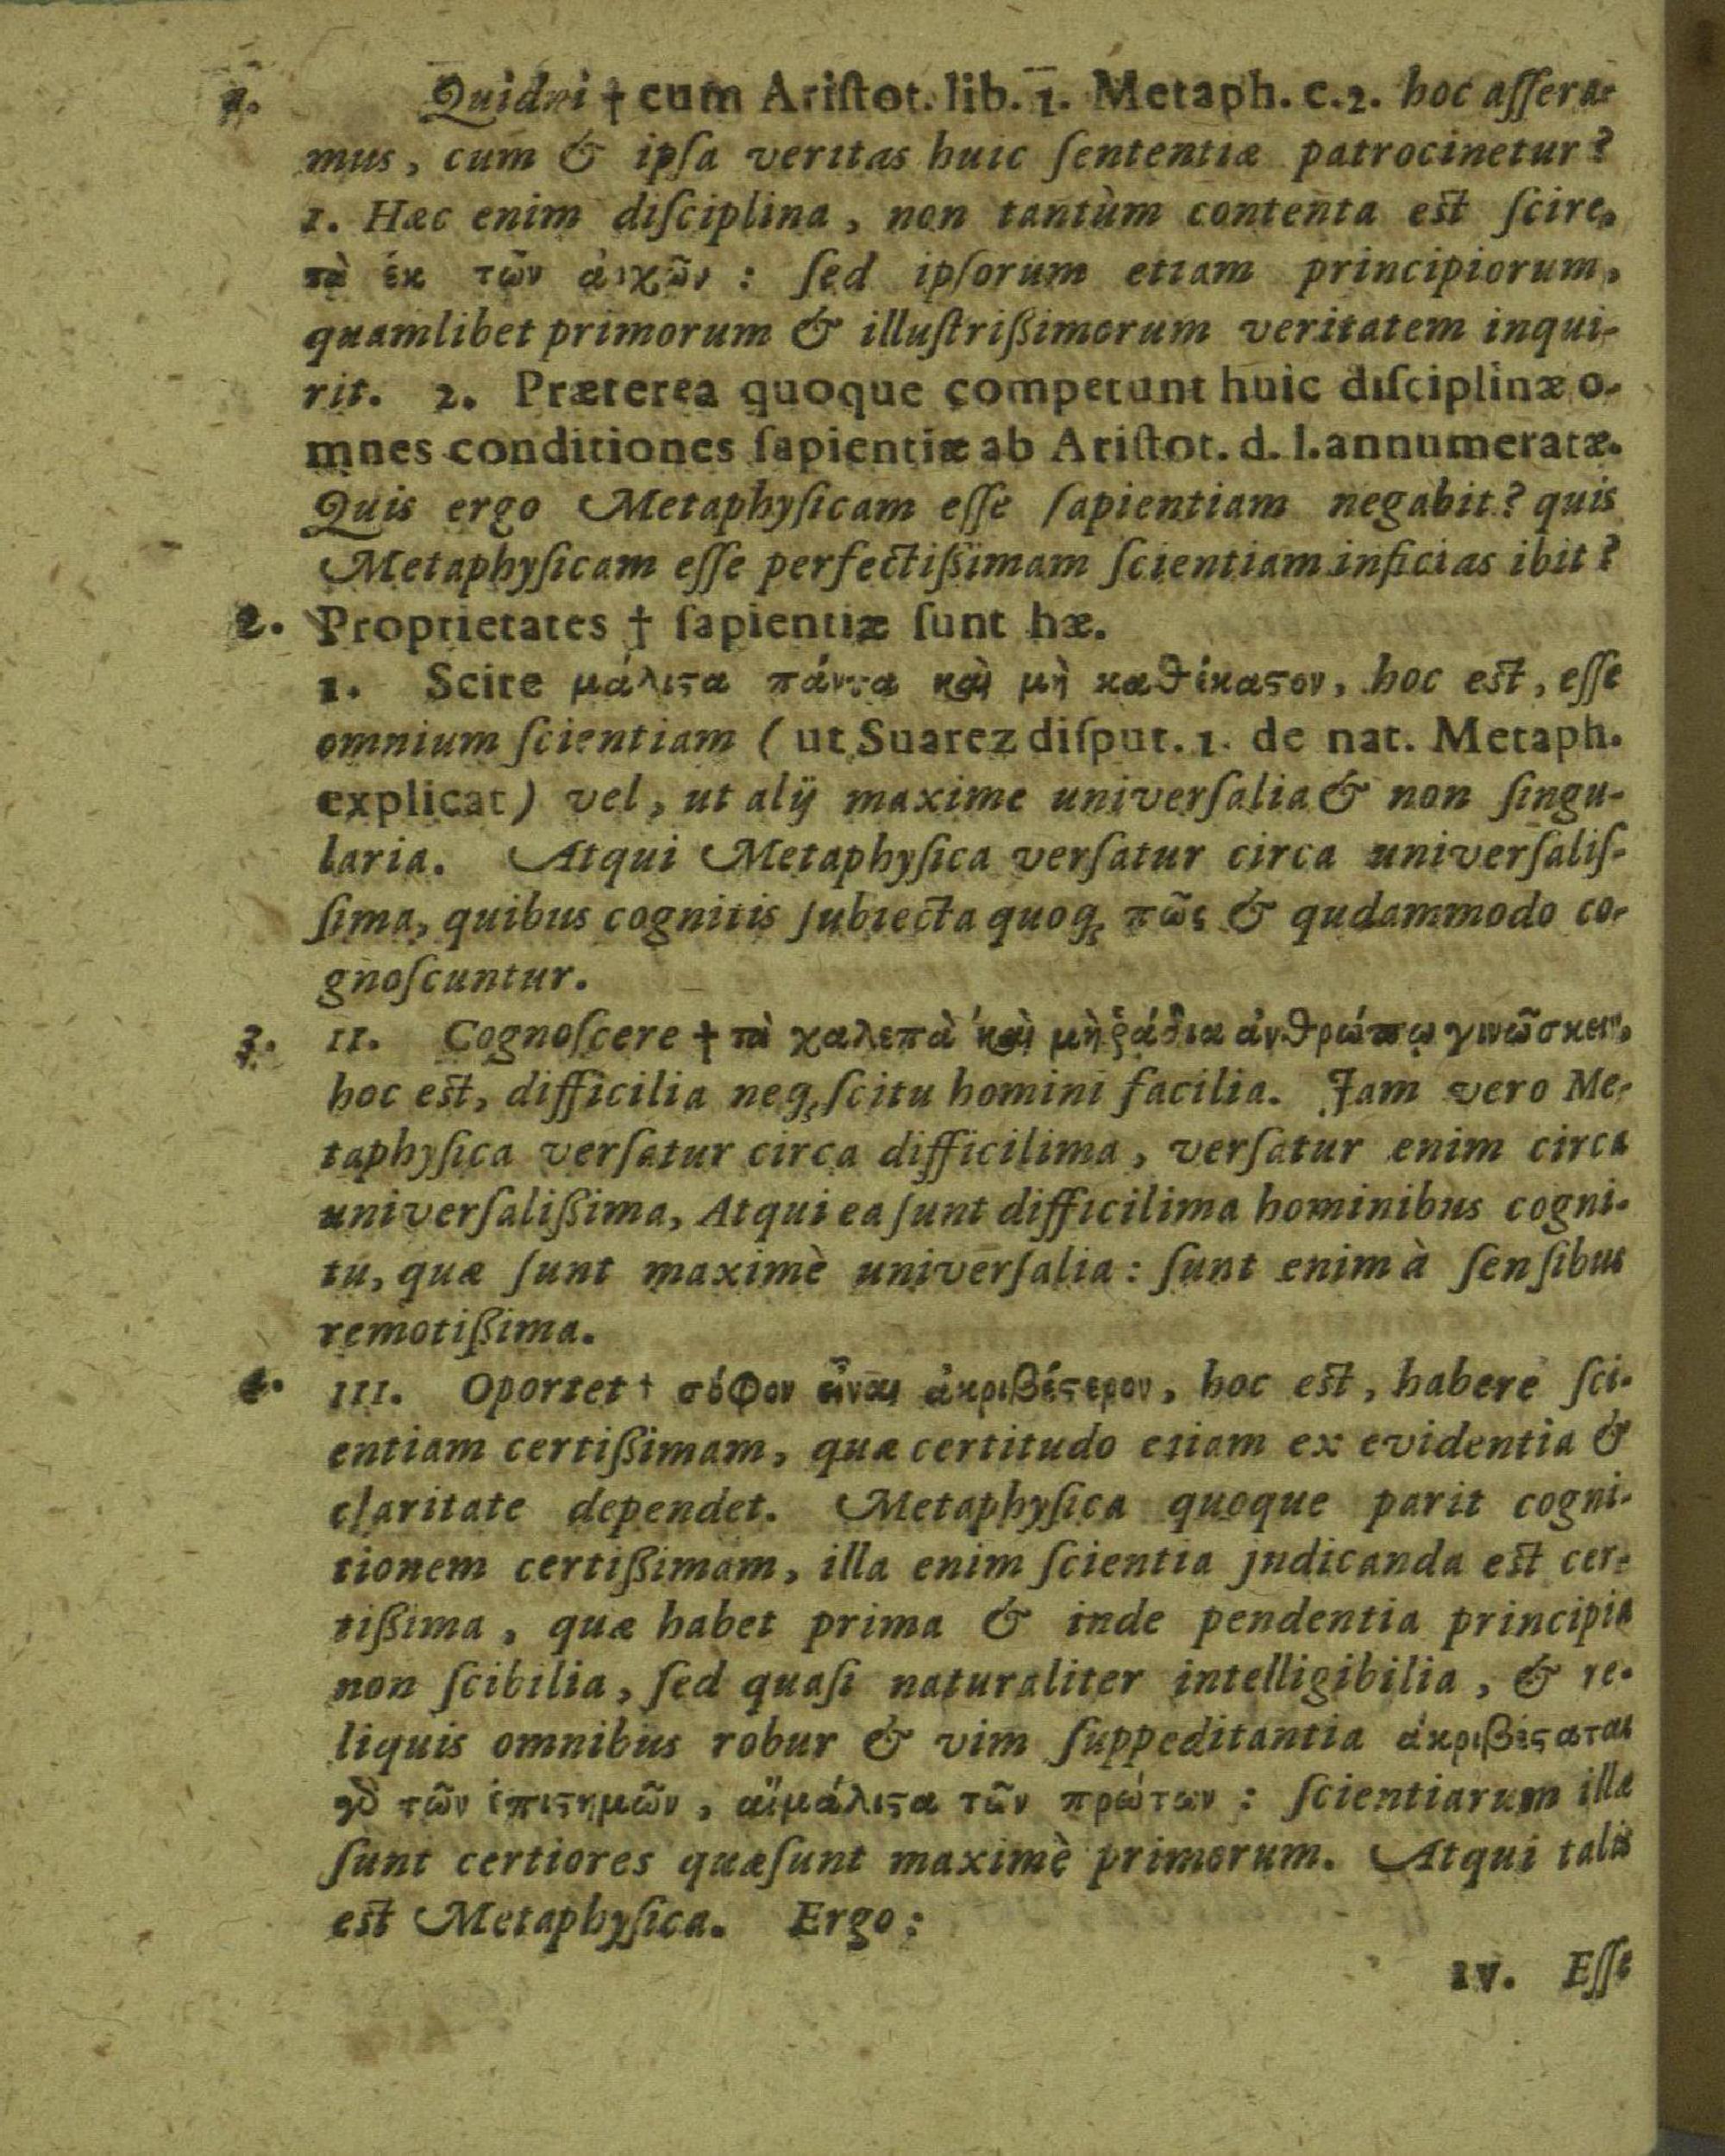 1. Quidni † cum Ariſtot. lib. 1. Metaph. c. 2. hoc aſſera-
mus, cum & ipſa veritas huic ſententiæ patrocinetur?
1. Hæc enim diſciplina, non tantùm contenta eſt ſcire,
τὰ ἐκ τῶν ἀρχῶν : ſed ipſorum etiam principiorum,
quamlibet primorum & illuſtrißimorum veritatem inqui-
rit. 2. Præterea quoque competunt huic diſciplinæ o-
mnes conditiones ſapientiæ ab Ariſtot. d. l. annumeratæ.
Quis ergo Metaphyſicam eſſe ſapientiam negabit? quis
Metaphyſicam eſſe perfectißimam ſcientiam inficias ibit?
2. Proprietates † ſapientiæ ſunt hæ.
1. Scire μάλιϛα πάντα καὶ μὴ καθέκαϛον, hoc eſt, eſſe
omnium ſcientiam ( ut Suarez diſput. 1. de nat. Metaph.
explicat) vel, ut alij maxime univerſalia & non ſingu-
laria. Atqui Metaphyſica verſatur circa univerſaliſ-
ſima, quibus cognitis ſubiecta quoq; πῶς & qudammodo co-
gnoſcuntur.
3. II. Cognoſcere † τὰ χαλεπὰ καὶ μὴ ῥάδια ἀνθρώπῳ γινῶσκειν,
hoc eſt, difficilia neq; ſcitu homini facilia. Jam vero Me-
taphyſica verſatur circa difficilima, verſatur enim circa
univerſalißima, Atqui ea ſunt difficilima hominibus cogni-
tu, quæ ſunt maximè univerſalia: ſunt enim à ſenſibus
remotißima.
4. III. Oportet † σόφον εἶναι ἀκριβέϛερον, hoc eſt, habere ſci-
entiam certißimam, quæ certitudo etiam ex evidentia &
claritate dependet. Metaphyſica quoque parit cogni-
tionem certißimam, illa enim ſcientia judicanda eſt cer-
tißima, quæ habet prima & inde pendentia principia
non ſcibilia, ſed quaſi naturaliter intelligibilia, & re-
liquis omnibus robur & vim ſuppeditantia ἀκριβέϛαται
γὸ τῶν ἐπιϛημῶν, αἵ μάλιϛα τῶν πρώτων : ſcientiarum illæ
ſunt certiores quæ ſunt maximè primorum. Atqui talis
eſt Metaphyſica. Ergo:
IV. Eſſe